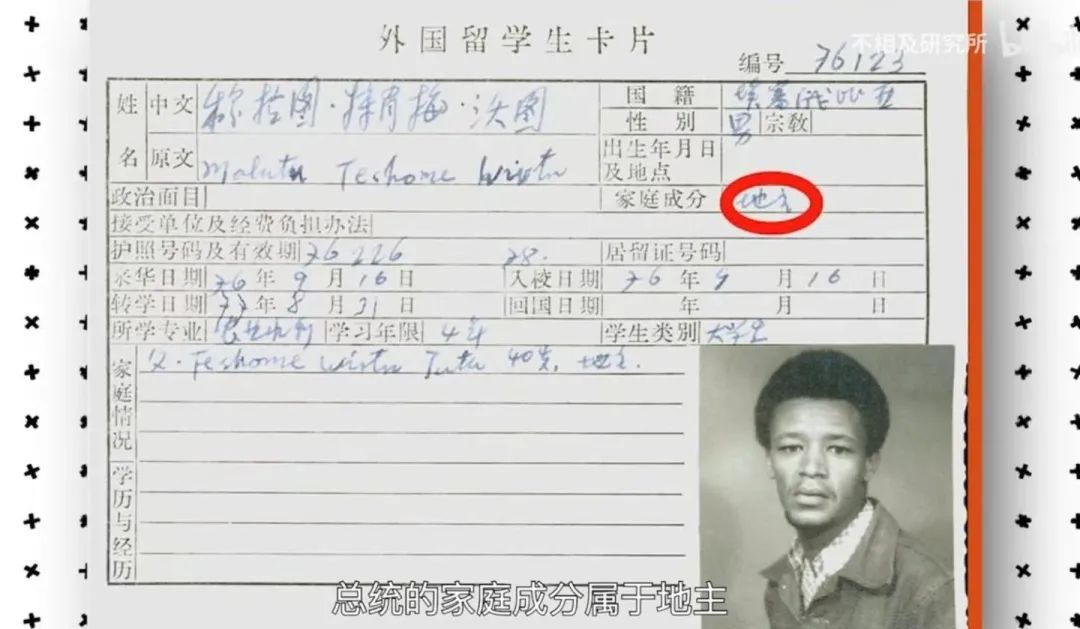 不相及研究所 bilibili
外国留学生卡片
编号 76123
姓名 中文 穆拉图·特肖梅·沃图 国籍 埃塞俄比亚
性别 男 宗教
原文 Mulatu Teshome Wirtu 出生年月日及地点
政治面目 家庭成分 地主
接受单位及经费负担办法
护照号码及有效期 76226 78. 居留证号码
来华日期 76年9月16日 入校日期 76年9月16日
转学日期 77年8月31日 回国日期 年 月 日
所学专业 学习年限 4年 学生类别 大学生
家庭情况 父. Teshome Wirtu Tutu 40岁. 地主.
学历与经历
总统的家庭成分属于地主